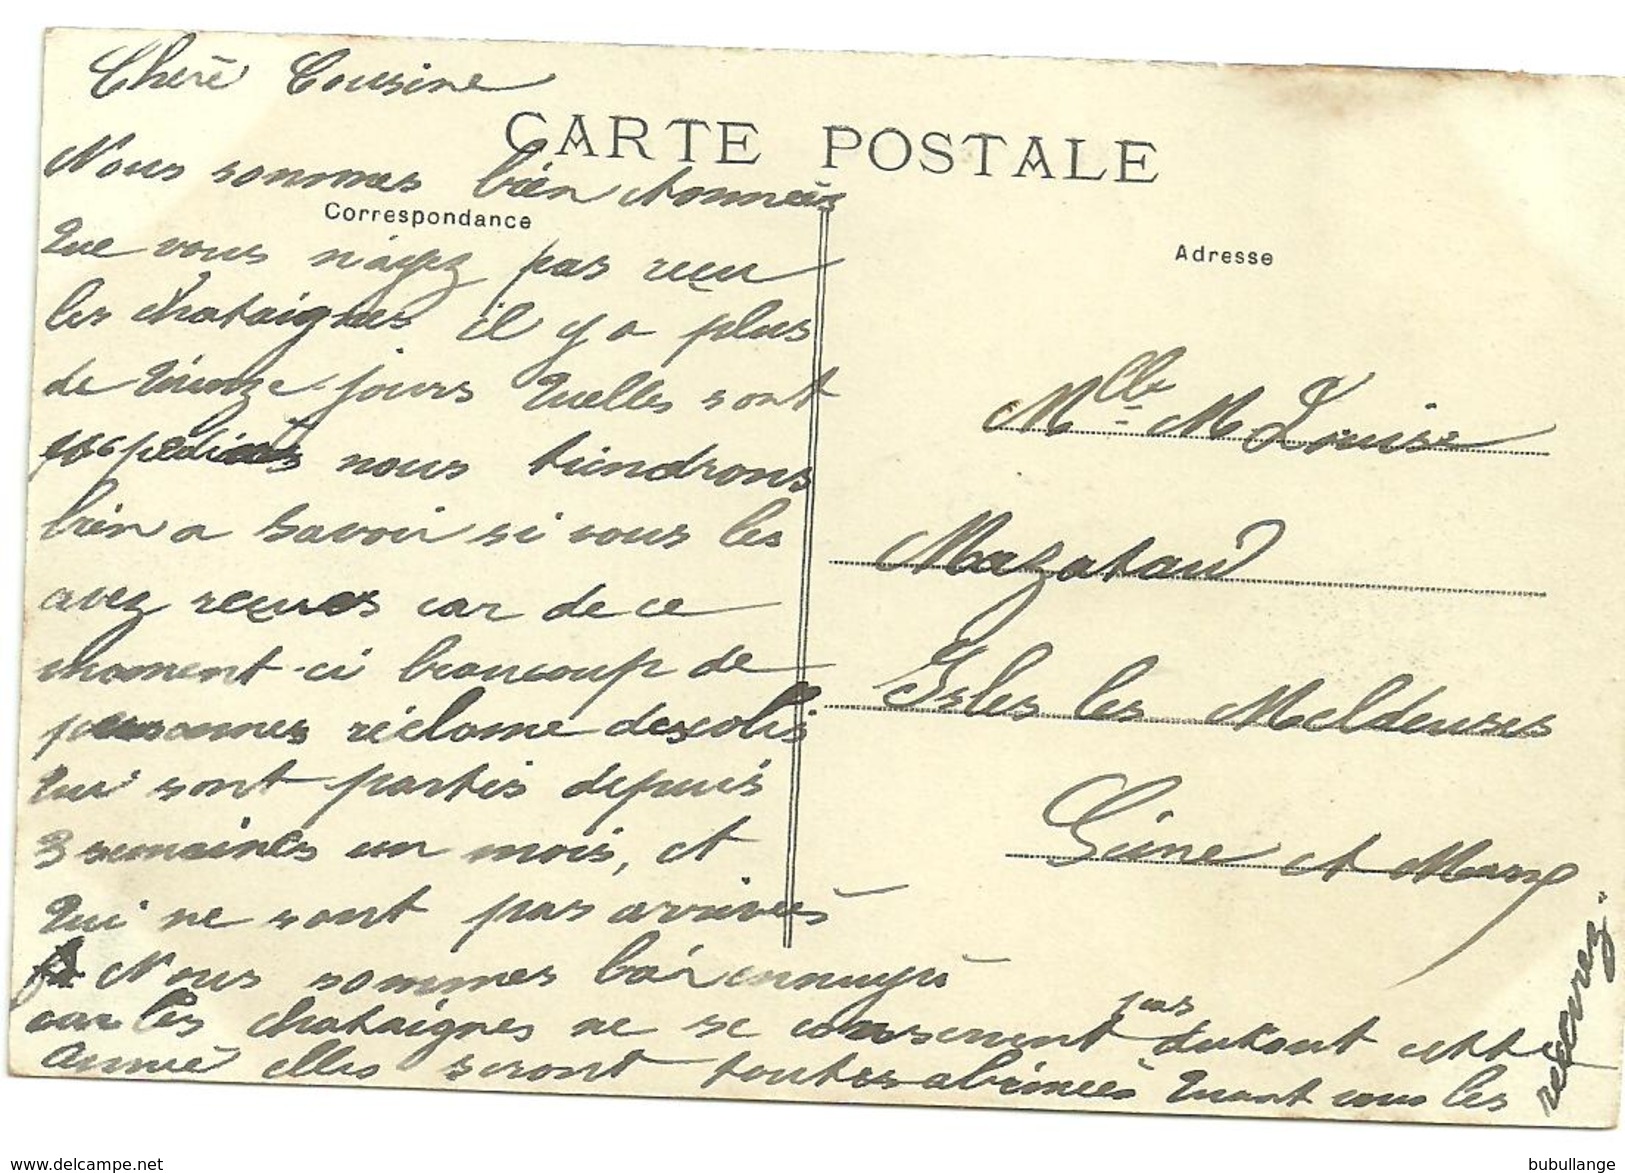 Cheré Cousine
CARTE POSTALE
Nous sommes bien étonnées
Correspondance
Adresse
que vous n'ayez pas reçu
les chataignes il y a plus
de quinze jours quelles sont
expediées nous tiendrons
bien a savoir si vous les
avez reçues car de ce
moment-ci beaucoup de
personnes réclame des colis
qui sont partis depuis
3 semaines un mois, et
qui ne sont pas arrivées
Nous sommes bien ennuyé
car les chataignes ne se conservent pas surtout cette
année elles seront toutes abimées quant vous les
recevrez.
Mlle M. Louise
Mazataud
Isles les Meldeuses
Seine et Marne
delcampe.net
bubullange